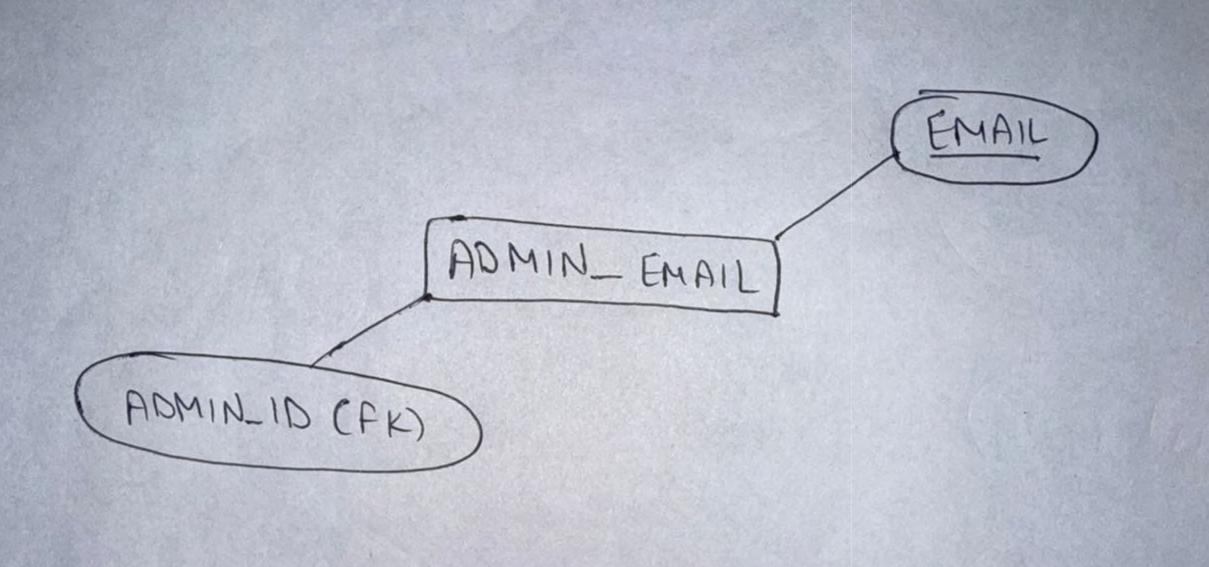 EMAIL
ADMIN_EMAIL
ADMIN_ID (FK)